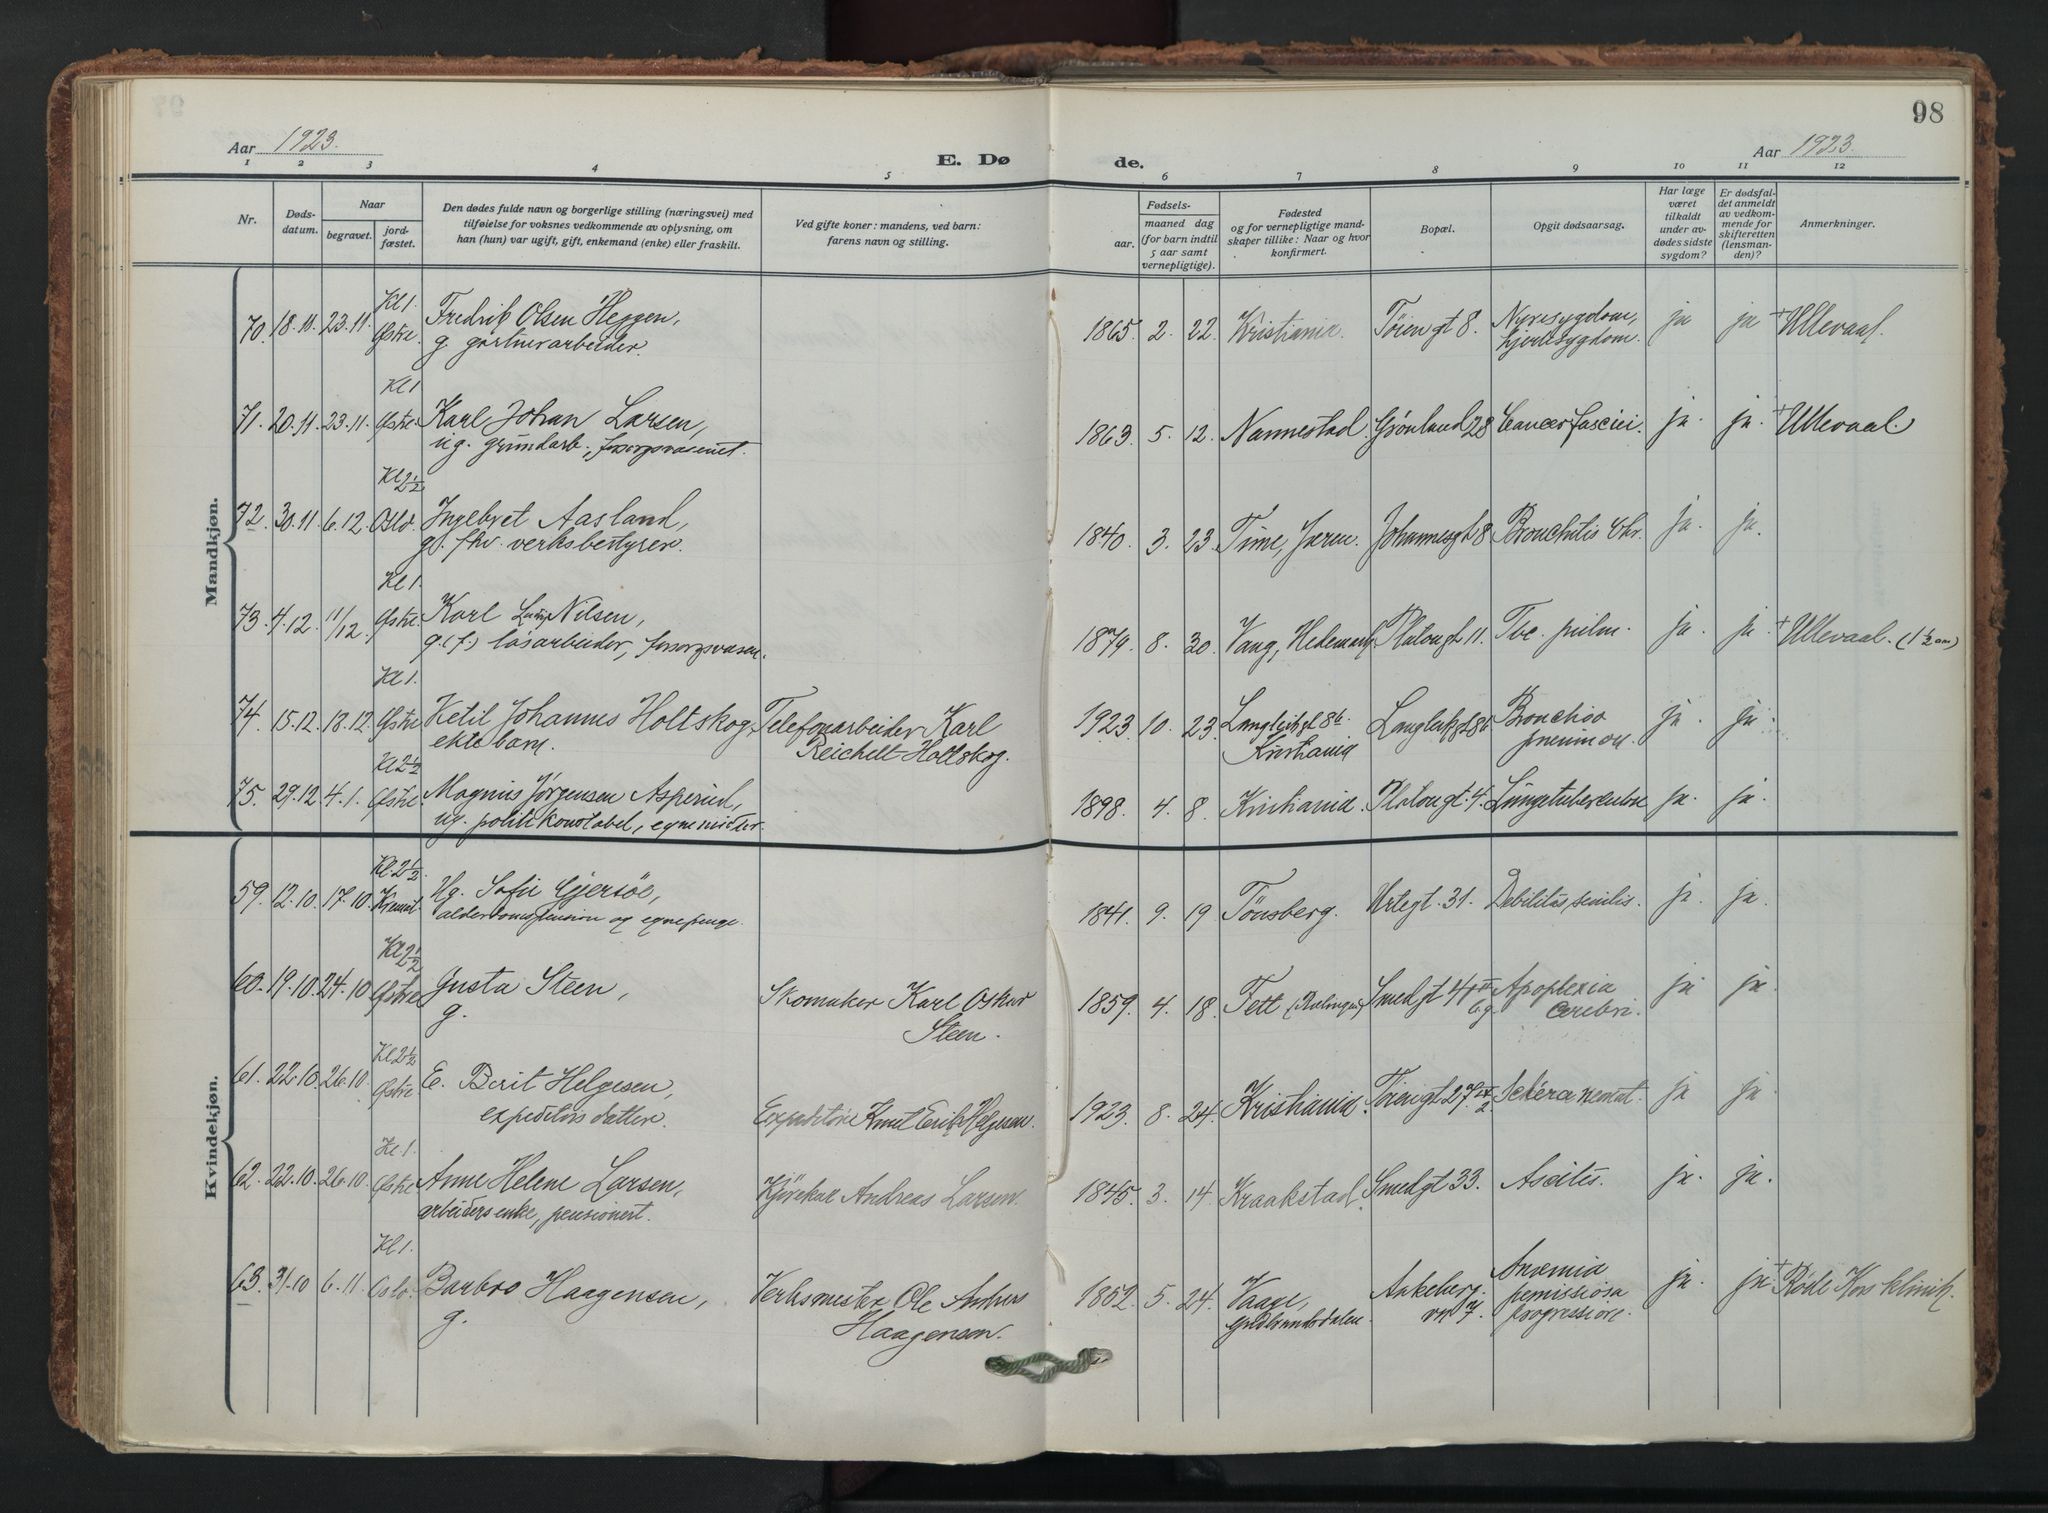 98
Aar 1923. E. Dø de. Aar 1923.
1 2 3 4 5 6 7 8 9 10 11 12
Nr.
Døds-
datum.
Naar
begravet.
jord-
fæstet.
Den dødes fulde navn og borgerlige stilling (næringsvei) med
tilføielse for voksnes vedkommende av oplysning, om
han (hun) var ugift, gift, enkemand (enke) eller fraskilt.
Ved gifte koner: mandens, ved barn:
farens navn og stilling.
Fødsels-
aar. maaned dag
(for barn indtil
5 aar samt
vernepligtige).
Fødested
og for vernepligtige mand-
skaper tillike: Naar og hvor
konfirmert.
Bopæl.
Opgit dødsaarsag.
Har læge
været
tilkaldt
under av-
dødes sidste
sygdom?
Er dødsfal-
det anmeldt
av vedkom-
mende for
skifteretten
(lensman-
den)?
Anmerkninger.
Mandkjøn.
Kl 1
70. 18.11. 23.11. Østre. Fredrik Olsen Heggen, 1865. 2. 22. Kristiania. Tøiengt 8. Nyresygdom, ja ja + Ullevaal.
g. gartnerarbeider. hjertesygdom.
Kl 1
71. 20.11. 23.11. Østre. Karl Johan Larsen, 1863. 5. 12. Nannestad. Grønland 28 Cancer ja. ja. + Ullevaal.
ug. grundarb., forsorgsvæsenet.
Kl 2½
72. 30.11. 6.12. Oslo. Ingebret Aasland, 1840. 3. 23. Time, Jæren. Johannesgt 8 Bronchitis Chr. ja. ja.
g. fhv. verksbestyrer.
Kl 1.
73. 4.12. 11/12 Østre. Karl Nilsen, 1879. 8. 30. Vang, Hedemark. Platougt 11. Tbc. pulm. ja. ja. + Ullevaal. (1½ am)
g. (f.) løsarbeider, forsorgsvæsen.
Kl 1.
74. 15.12. 18.12. Østre Ketil Johannes Holtskog, Telefonarbeider Karl 1923. 10. 23. Langleikgt 8b. Langleikgt 8b Broncho ja. ja.
ekte barn. Reichelt Holtskog. Kristiania pneumon.
Kl 2½
75. 29.12. 4.1. Østre. Magnus Jørgensen Asperud, 1898. 4. 8. Kristiania. Platougt. 4. Lungetuberculose ja. ja.
ug. politikonstabel, egne midler.
Kvindekjøn.
Kl 2½.
59. 12.10. 17.10. Kremat. Ug. Sofie Gjersøe, 1841. 9. 19 Tønsberg. Urtegt. 31. Debilitas senilis. ja. ja.
alderdomspension og egne penge.
Kl 2½
60. 19.10. 24.10 Østre Gusta Steen, Skomaker Karl Oskar 1859. 4. 18. Smedgt Apoplexia ja ja.
g. Steen. Cerebri.
Kl 2½
61. 22.10. 26.10. Østre. E. Berit Helgesen, Expeditør Knut Erik Helgesen. 1923. 8. 24. Kristiania. Tøiengt 27 neonat. ja ja.
expeditørs datter.
Kl 1.
62. 22.10. 26.10. Østre Anne Helene Larsen, Kjørekar Andreas Larsen. 1845. 3. 14. Kraakstad. Smedgt 33. Ascites. ja. ja.
arbeiders enke, pensionert.
Kl 1.
63. 31.10 6.11. Oslo. Barbro Haagensen, Verksmester Ole Anders 1852. 5. 24. Vaage, Aakeberg- Anæmia ja. ja + Røde Kors klinik.
g. Haagensen. Gudbrandsdalen. vn 7. perniciosa
progressive.